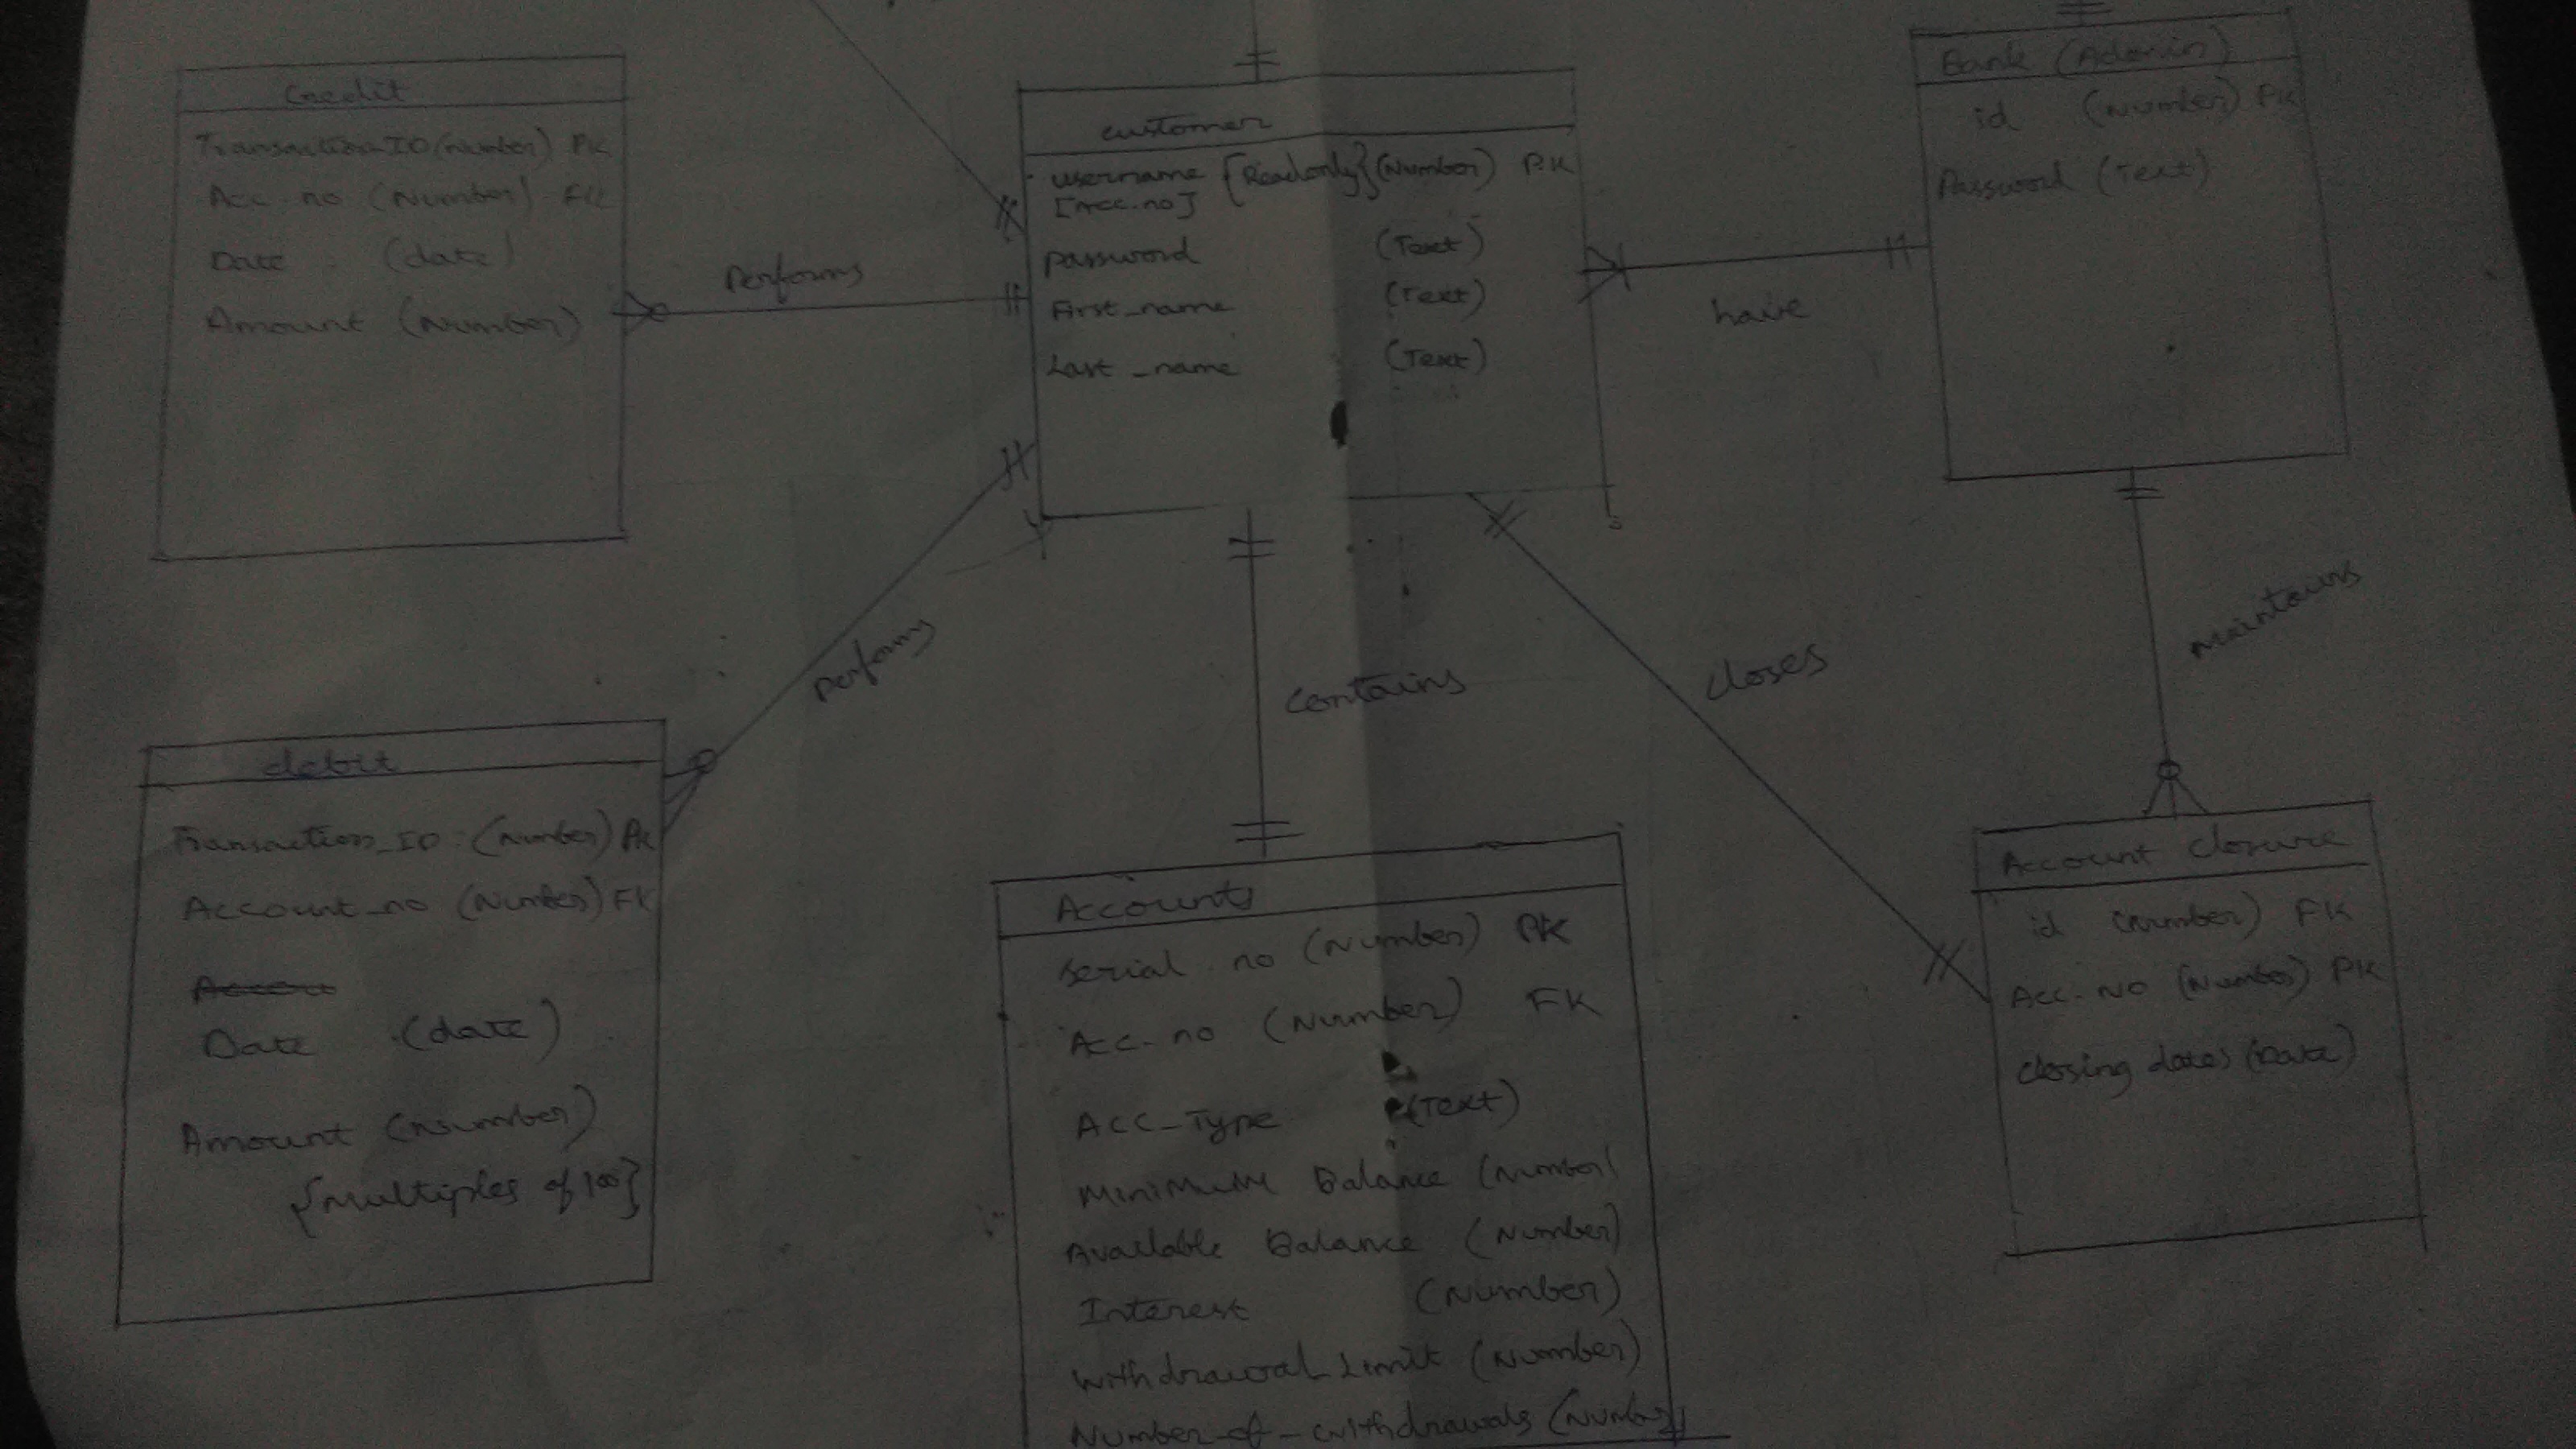 Credit
Transaction_ID (number) PK
Acc. no (Number) FK
Date : (date)
Amount (Number)
performs
customer
username {Readonly} (Number) PK
[Acc.no]
password (Text)
First_name (Text)
Last_name (Text)
have
Bank (Admin)
id (Number) PK
Password (Text)
performs
contains
closes
Maintains
debit
Transaction_ID : (Number) PK
Account_no (Number) FK
Date (date)
Amount (number)
{multiples of 100}
Accounts
Serial no (Number) PK
Acc_no (Number) FK
Acc_Type (Text)
Minimum Balance (Number)
Available Balance (Number)
Interest (Number)
Withdrawal_Limit (Number)
Number_of_withdrawals (Number)
Account closure
id (number) FK
Acc_No (Number) PK
closing dates (Date)